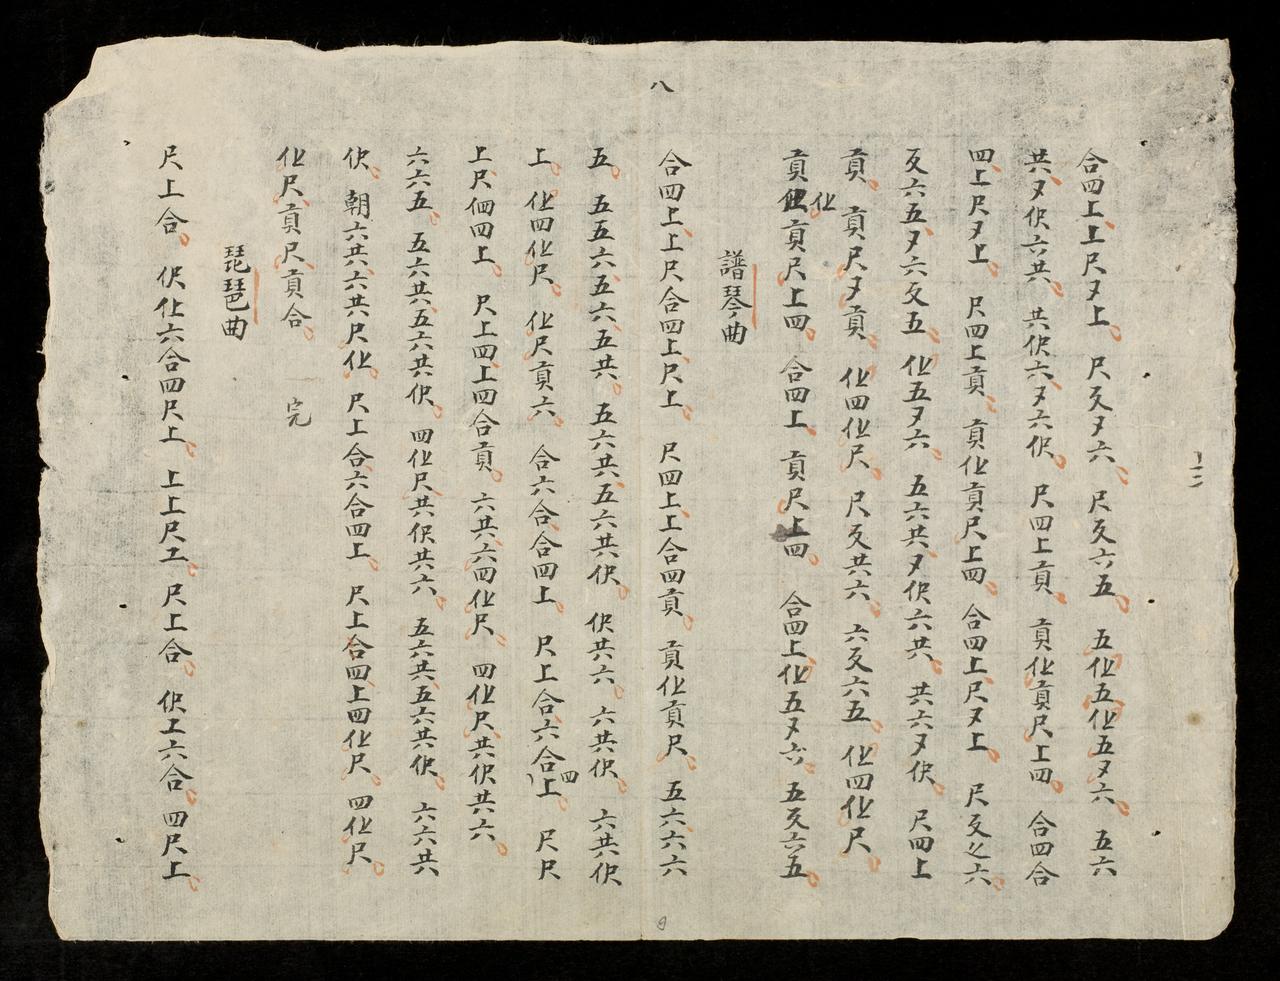 合四上上尺㐅上 尺㕛㐅六 尺㕛六五 五化五化五㐅六 五六
共㐅伬六共 共伬六㐅六伬 尺四上貢 貢化貢尺上四 合四合
四上尺㐅上 尺四上貢 貢化貢尺上四 合四上尺㐅上 尺㕛㐅六
㕛六五㐅六㕛五 化五㐅六 五六共㐅伬六共 共六㐅伬 尺四上
貢 貢尺㐅貢 化四化尺 尺㕛共六 六㕛六五 化四化尺
化
貢貢尺上四 合四上 貢尺上四 合四上化五㐅六 五㕛六五
譜琴曲
八
合四上上尺合四上尺上 尺四上上合四貢 貢化貢尺 五六六六
五 五五六五六五共 五六共五六共伬 伬共六 六共伬 六共伬
上 化四化尺 化尺貢六 合六合合四上 尺上合六合上 尺尺
四
上尺四上 尺上四上四合貢 六共六四化尺 四化尺共伬共六
六六五 五六共五六共伬 四化尺共伬共六 五六共五六共伬 六六共
伬 朝六共六共尺化 尺上合六合四上 尺上合四上四化尺 四化尺
化尺貢尺貢合 完
琵琶曲
尺上合 伬化六合四尺上 上上尺工 尺上合 伬工六合 四尺上
9